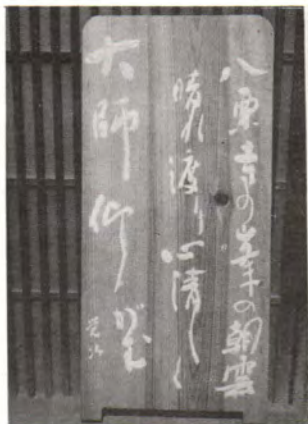 八栗寺の峯の朝雲
晴れ渡り心清しく
大師仰がむ